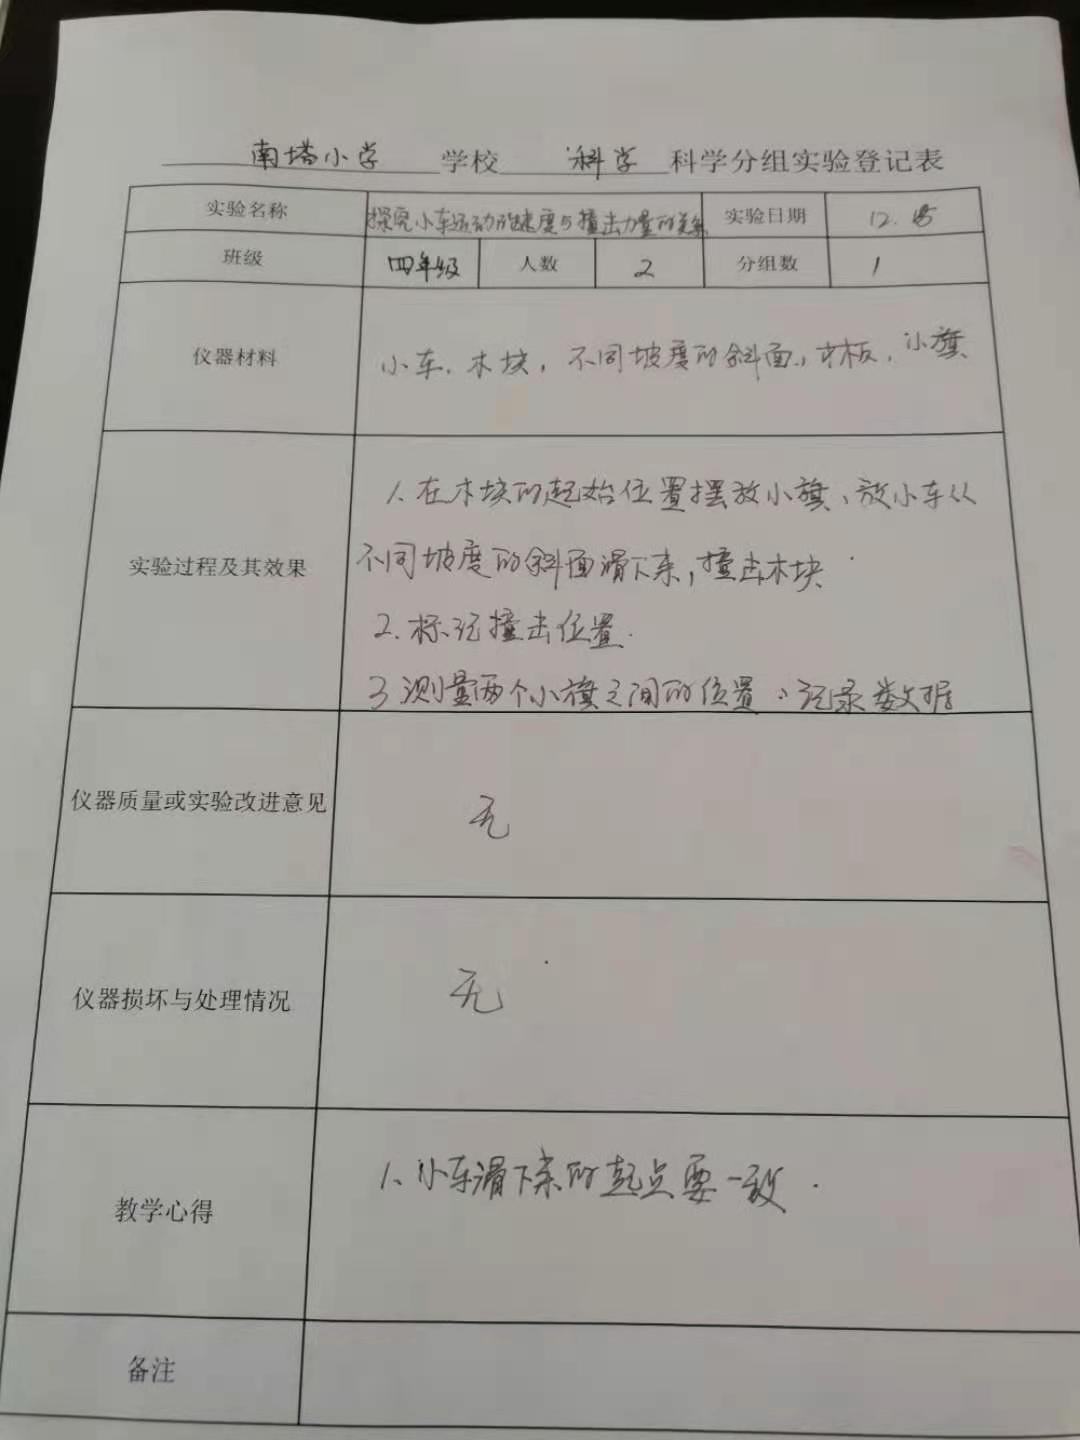 南塔小学 学校 科学 科学分组实验登记表
实验名称 探究小车运动的速度与撞击力量的关系 实验日期 12.
班级 四年级 人数 2 分组数 1
仪器材料 小车、木块，不同坡度的斜面、木板、小旗
1、在木块的起始位置摆放小旗、放小车从
实验过程及其效果 不同坡度的斜面滑下来，撞击木块.
2.标记撞击位置.
3 测量两个小旗之间的位置、记录数据
仪器质量或实验改进意见 无
仪器损坏与处理情况 无
教学心得 1、小车滑下来的起点要一致.
备注